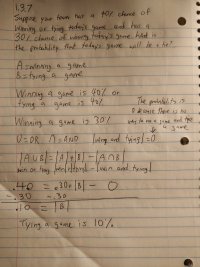 1.3.7
Suppose your town has a 40% chance of
winning or tying today's game and has a
30% chance of winning today's game. What is
the probability that today's game will be a tie?
A = winning a game
B = tying a game
Winning a game is 40% or
tying a game is 40%
The probability is
0 because there is no
way to win a game and tie
a game
Winning a game is 30%
U = OR ∩ = AND |wing and tying| = 0
|A ∪ B| = |A| + |B| - |A ∩ B|
.40 = .30 + |B| - 0
-.30 -.30
.10 = |B|
Tying a game is 10%.